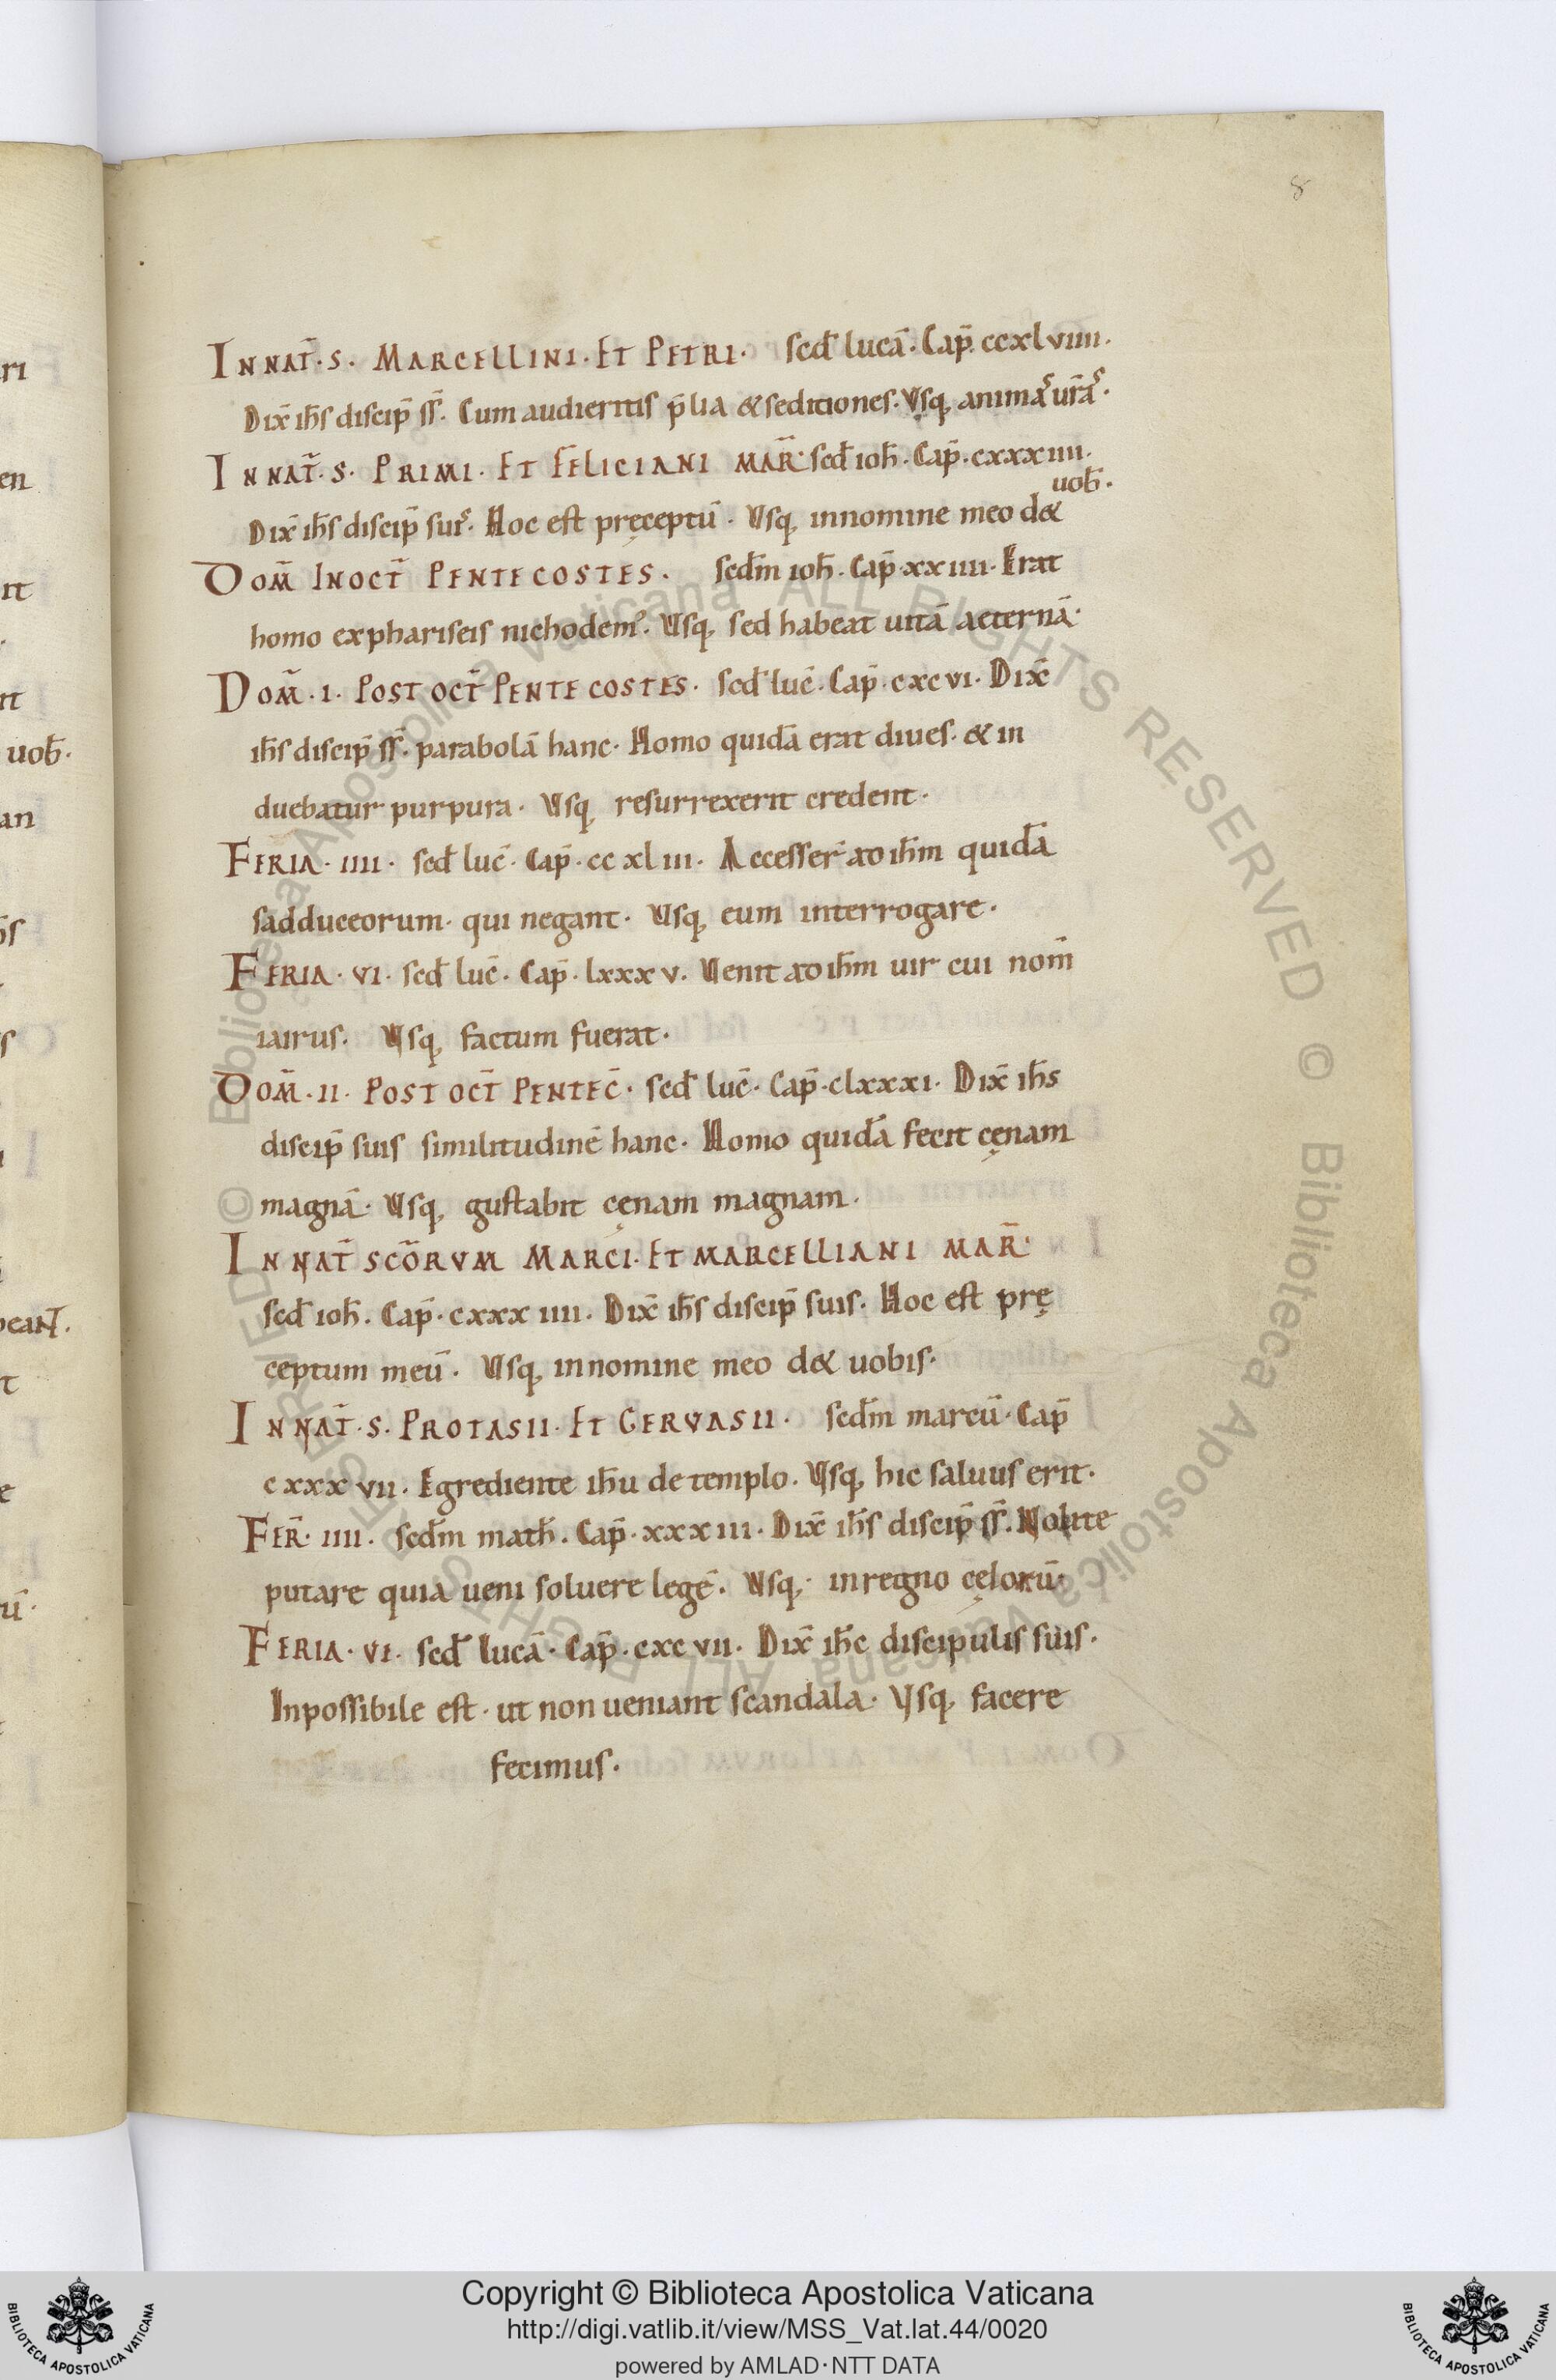 8
IN NAT̄·S· MARCELLINI· ET PETRI· sed̄ lucā· Cap̄· ccxlviiii·
Dix̄ ih̄s discip̄ ss̄· Cum audieritis p̄lia & seditiones· Vsq, animaˢ ur̄aˢ·
IN NAT̄· S· PRIMI· ET FELICIANI MAR̄· sed̄ ioh̄· Cap̄· cxxxiiii·
uob̄·
Dix̄ ih̄s discip̄ suiˢ· Hoc est pręceptū· Vsq, in nomine meo d&
DOM̄ IN OCT̄ PENTECOSTES· sed̄m ioh̄· Cap̄· xxiiii· Erat
homo ex phariseis nichodem᾽· Vsq, sed habeat uitā aeternā·
DOM̄· I· POST OCT̄ PENTECOSTES· sed̄ luc̄· Cap̄· cxcvi· Dix̄
ih̄s discip̄ ss̄· parabolā hanc· Homo quidā erat diues· & in
duebatur purpura· Vsq, resurrexerit credent·
FERIA· IIII· sed̄ luc̄· Cap̄· ccxliii· Accesser̄ ad ih̄m quidā
sadduceorum· qui negant· Vsq, eum interrogare·
FERIA· VI· sed̄ luc̄· Cap̄· lxxxv· Venit ad ih̄m uir cui nom̄
iairus· Vsq, factum fuerat·
DOM̄· II· POST OCT̄ PENTEC̄· sed̄ luc̄· Cap̄· clxxxi· Dix̄ ih̄s
discip̄ suis similitudinē hanc· Homo quidā fecit cęnam
magnā· Vsq, gustabit cęnam magnam·
IN NAT̄ SC̄ORVM MARCI· ET MARCELLIANI MAR̄·
sed̄ ioh̄· Cap̄· cxxxiiii· Dix̄ ih̄s discip̄ suis· Hoc est prę
ceptum meū· Vsq, in nomine meo d& uobis·
IN NAT̄· S· PROTASII· ET GERVASII· sed̄m marcū· Cap̄
cxxxvii· Egrediente ih̄u de templo· Vsq, hic saluus erit·
FER̄· IIII· sed̄m math̄· Cap̄· xxxiii· Dix̄ ih̄s discip̄ ss̄· Nolite
putare quia ueni soluere legē· Vsq, in regno cęlorū·
FERIA· VI· sed̄ lucā· Cap̄· cxcvii· Dix̄ ih̄c discipulis suis·
Inpossibile est· ut non ueniant scandala· Vsq, facere
fecimus·
© Biblioteca Apostolica Vaticana ALL RIGHTS RESERVED
© Biblioteca Apostolica Vaticana ALL RIGHTS RESERVED
Copyright © Biblioteca Apostolica Vaticana
http://digi.vatlib.it/view/MSS_Vat.lat.44/0020
powered by AMLAD·NTT DATA
BIBLIOTECA APOSTOLICA VATICANA
BIBLIOTECA APOSTOLICA VATICANA